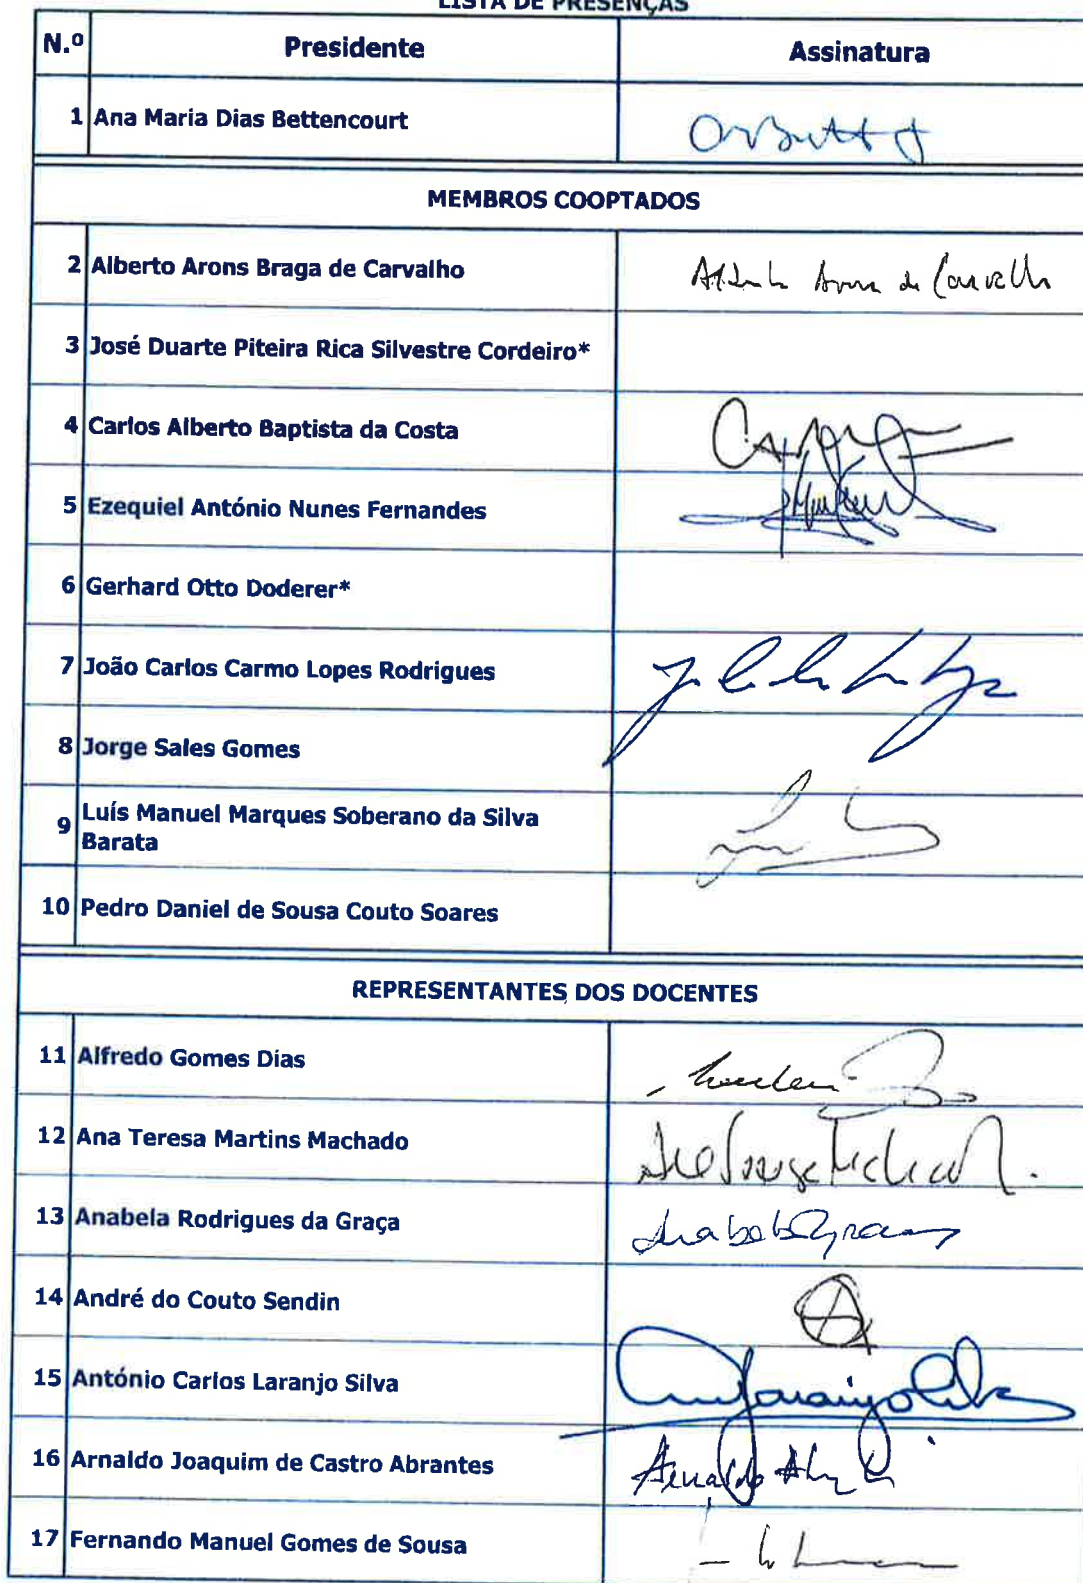 LISTA DE PRESENÇAS
N.º Presidente Assinatura
1 Ana Maria Dias Bettencourt
MEMBROS COOPTADOS
2 Alberto Arons Braga de Carvalho Alberto Arons de Carvalho
3 José Duarte Piteira Rica Silvestre Cordeiro*
4 Carlos Alberto Baptista da Costa
5 Ezequiel António Nunes Fernandes
6 Gerhard Otto Doderer*
7 João Carlos Carmo Lopes Rodrigues
8 Jorge Sales Gomes
9 Luís Manuel Marques Soberano da Silva
Barata
10 Pedro Daniel de Sousa Couto Soares
REPRESENTANTES DOS DOCENTES
11 Alfredo Gomes Dias
12 Ana Teresa Martins Machado
13 Anabela Rodrigues da Graça Anabela Graça
14 André do Couto Sendin
15 António Carlos Laranjo Silva
16 Arnaldo Joaquim de Castro Abrantes Arnaldo
17 Fernando Manuel Gomes de Sousa